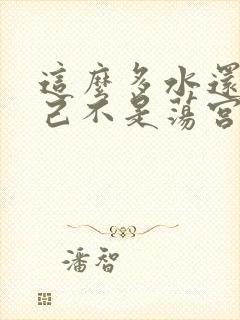 這麼多水還
己不是蕩宮
潘智